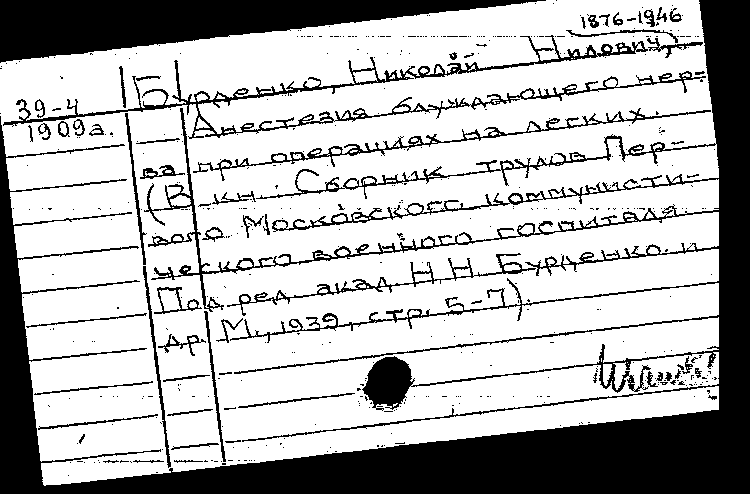 1876-1946
Бурденко, Николай Нилович,
39-4
1909а.
Анестезия блуждающего нер-
ва при операциях на легких.
(В кн.: Сборник трудов Пер-
вого Московского коммунисти-
ческого военного госпиталя
Под ред. акад. Н.Н. Бурденко. и
др. М., 1939, стр. 5-7).